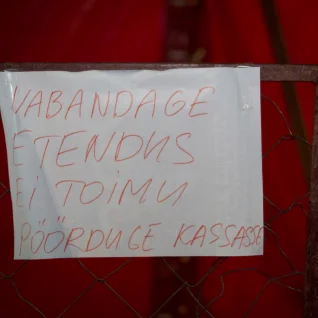 VABANDAGE
ETENDUS
EI TOIMU
PÖÖRDUGE KASSASSE